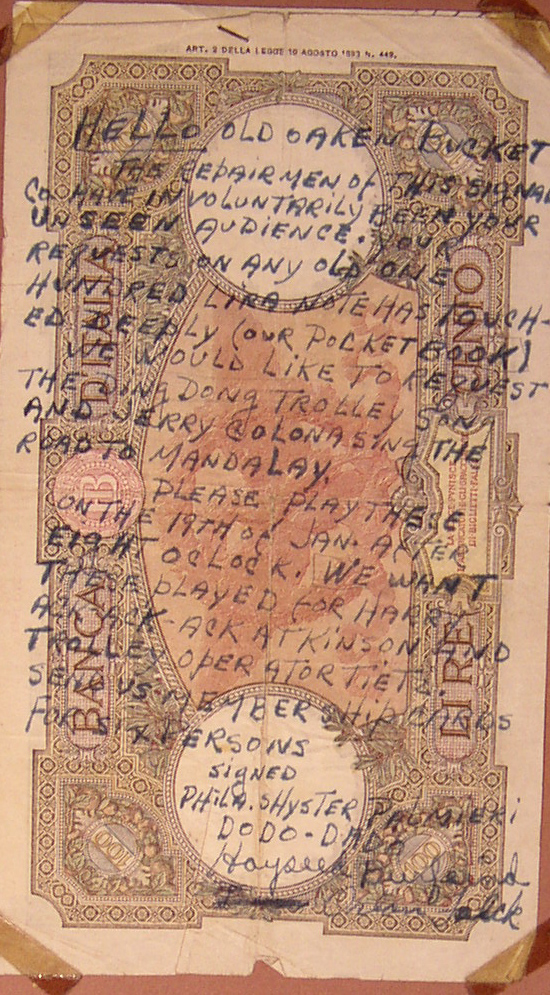 ART. 2 DELLA LEGGE 10 AGOSTO 1893 N. 449.
HELLO OLD OAKEN BUCKET
THE REPAIRMEN OF THIS SIGNAL
CO HAVE INVOLUNTARILY BEEN YOUR
UNSEEN AUDIENCE. YOUR
REQUESTS ON ANY OLD ONE
HUNDRED LIRA NOTE HAS TOUCH-
ED DEEPLY (OUR POCKETBOOK)
WE WOULD LIKE TO REQUEST
THE DING DONG TROLLEY SONG
AND JERRY COLONA SING THE
ROAD TO MANDALAY.
PLEASE PLAY THESE
ON THE 19TH OF JAN. AFTER
EIGHT OCLOCK. WE WANT
THESE PLAYED FOR HARRY
ACK-ACK ATKINSON AND
TROLLEY OPERATOR TIETZ.
SEND US MEMBERSHIP CARDS
FOR SIX PERSONS
SIGNED
PHILA. SHYSTER PALMIERI
DODO-DADO
Hayseed
BANCA D'ITALIA
LIRE CENTO
B
100
100